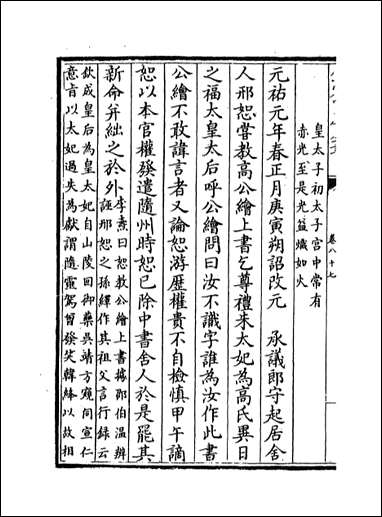 皇太子初太子宮中常有
赤光至是光益熾如火
卷八十七
元祐元年春正月庚寅朔詔改元　承議郎守起居舍
人邢恕嘗教高公繪上書乞尊禮朱太妃為高氏異日
之福太皇太后呼公繪問曰汝不識字誰為汝作此書
公繪不敢諱言者又論恕游歷權貴不自檢慎甲午謫
恕以本官權發遣隨州時恕已除中書舍人於是罷其
新命并絀之於外李燾曰恕教公繪上書據邵伯温辨
誣邢恕之孫繹作其祖父言行録云
欽成皇后為皇太妃自山陵回御藥吳靖方窺伺宣仁
意旨以太妃過失為獻謂隨靈駕曾發笑韓絳以故相